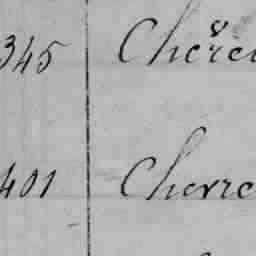 345 Cherei
401 Cherre